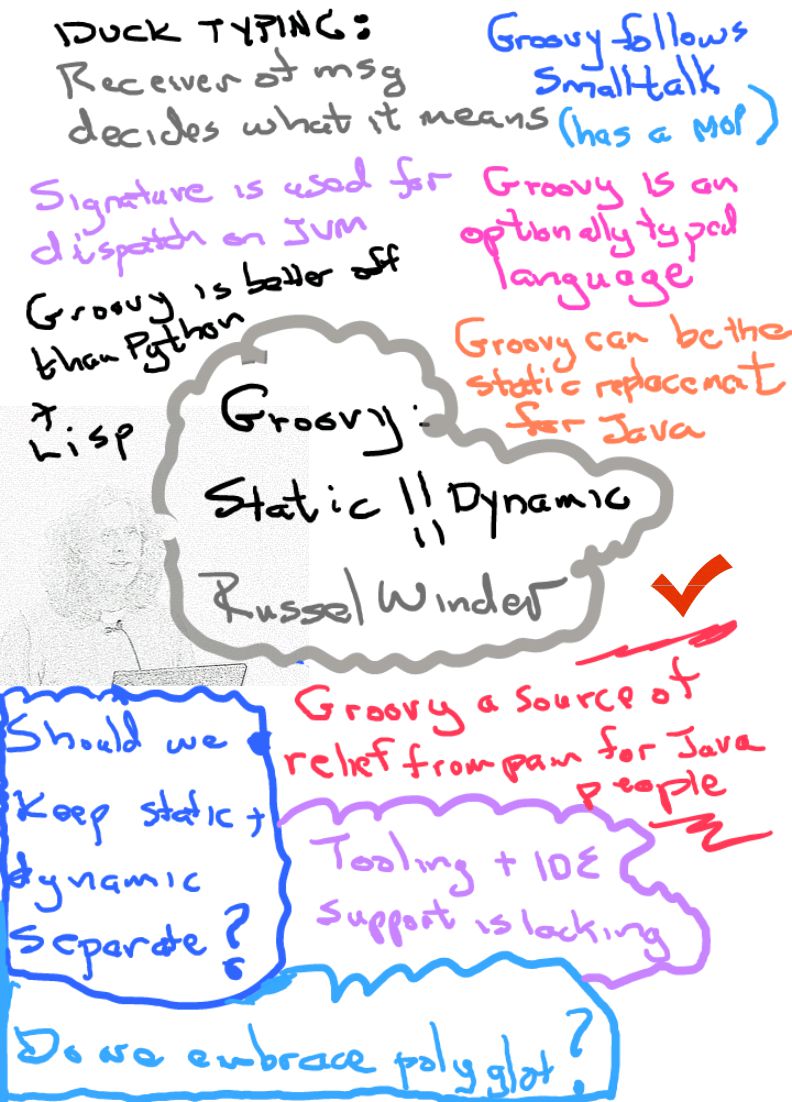 DUCK TYPING:
Receiver of msg
decides what it means
Groovy follows
Smalltalk
(has a MOP)
Signature is used for
dispatch on JVM
Groovy is an
optionally typed
language
Groovy is better off
than Python
+
Lisp
Groovy can be the
static replacement
for Java
Groovy:
Static || Dynamic
Russel Winder
Groovy a source of
relief from pain for Java
people
Should we
Keep static +
dynamic
separate?
Tooling + IDE
support is lacking
Do we embrace polyglot?